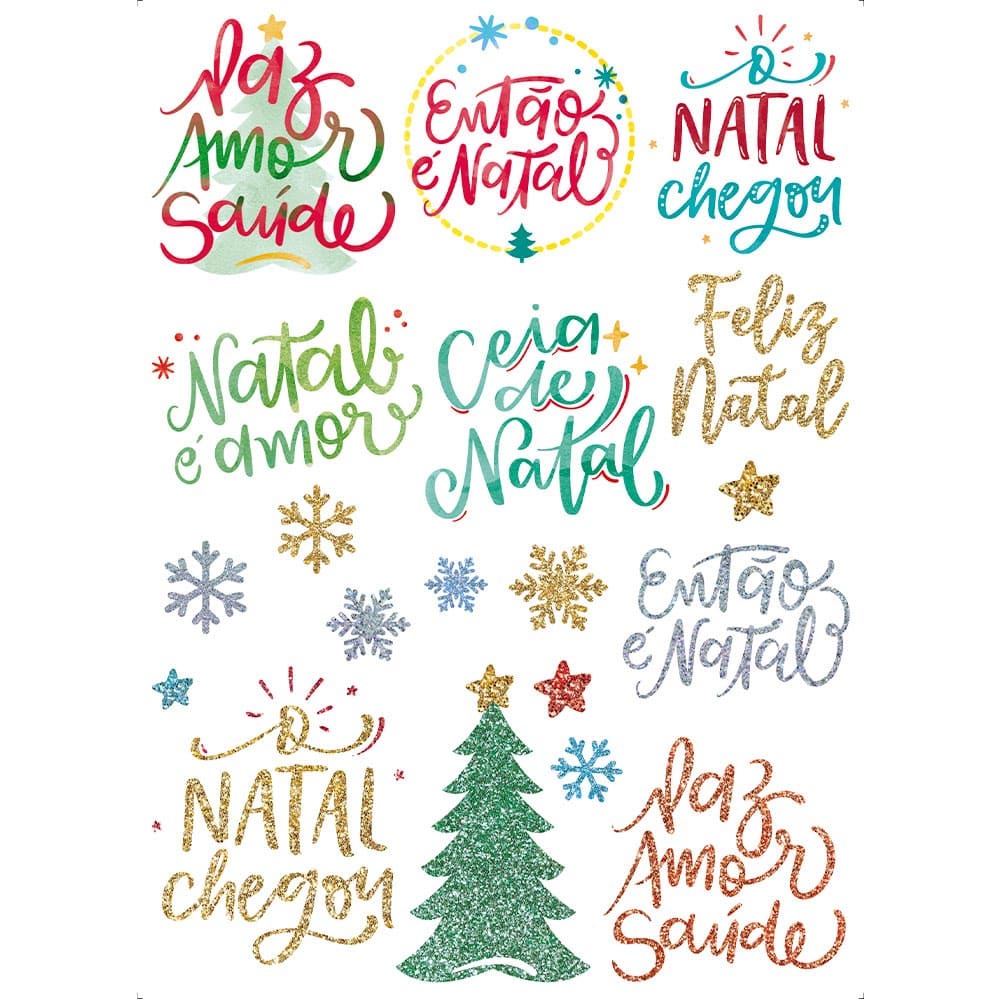 Paz
Amor
Saúde
Então
é Natal
O
NATAL
chegou
Natal
é amor
Ceia
de
Natal
Feliz
Natal
Então
é Natal
O
NATAL
chegou
Paz
Amor
Saúde